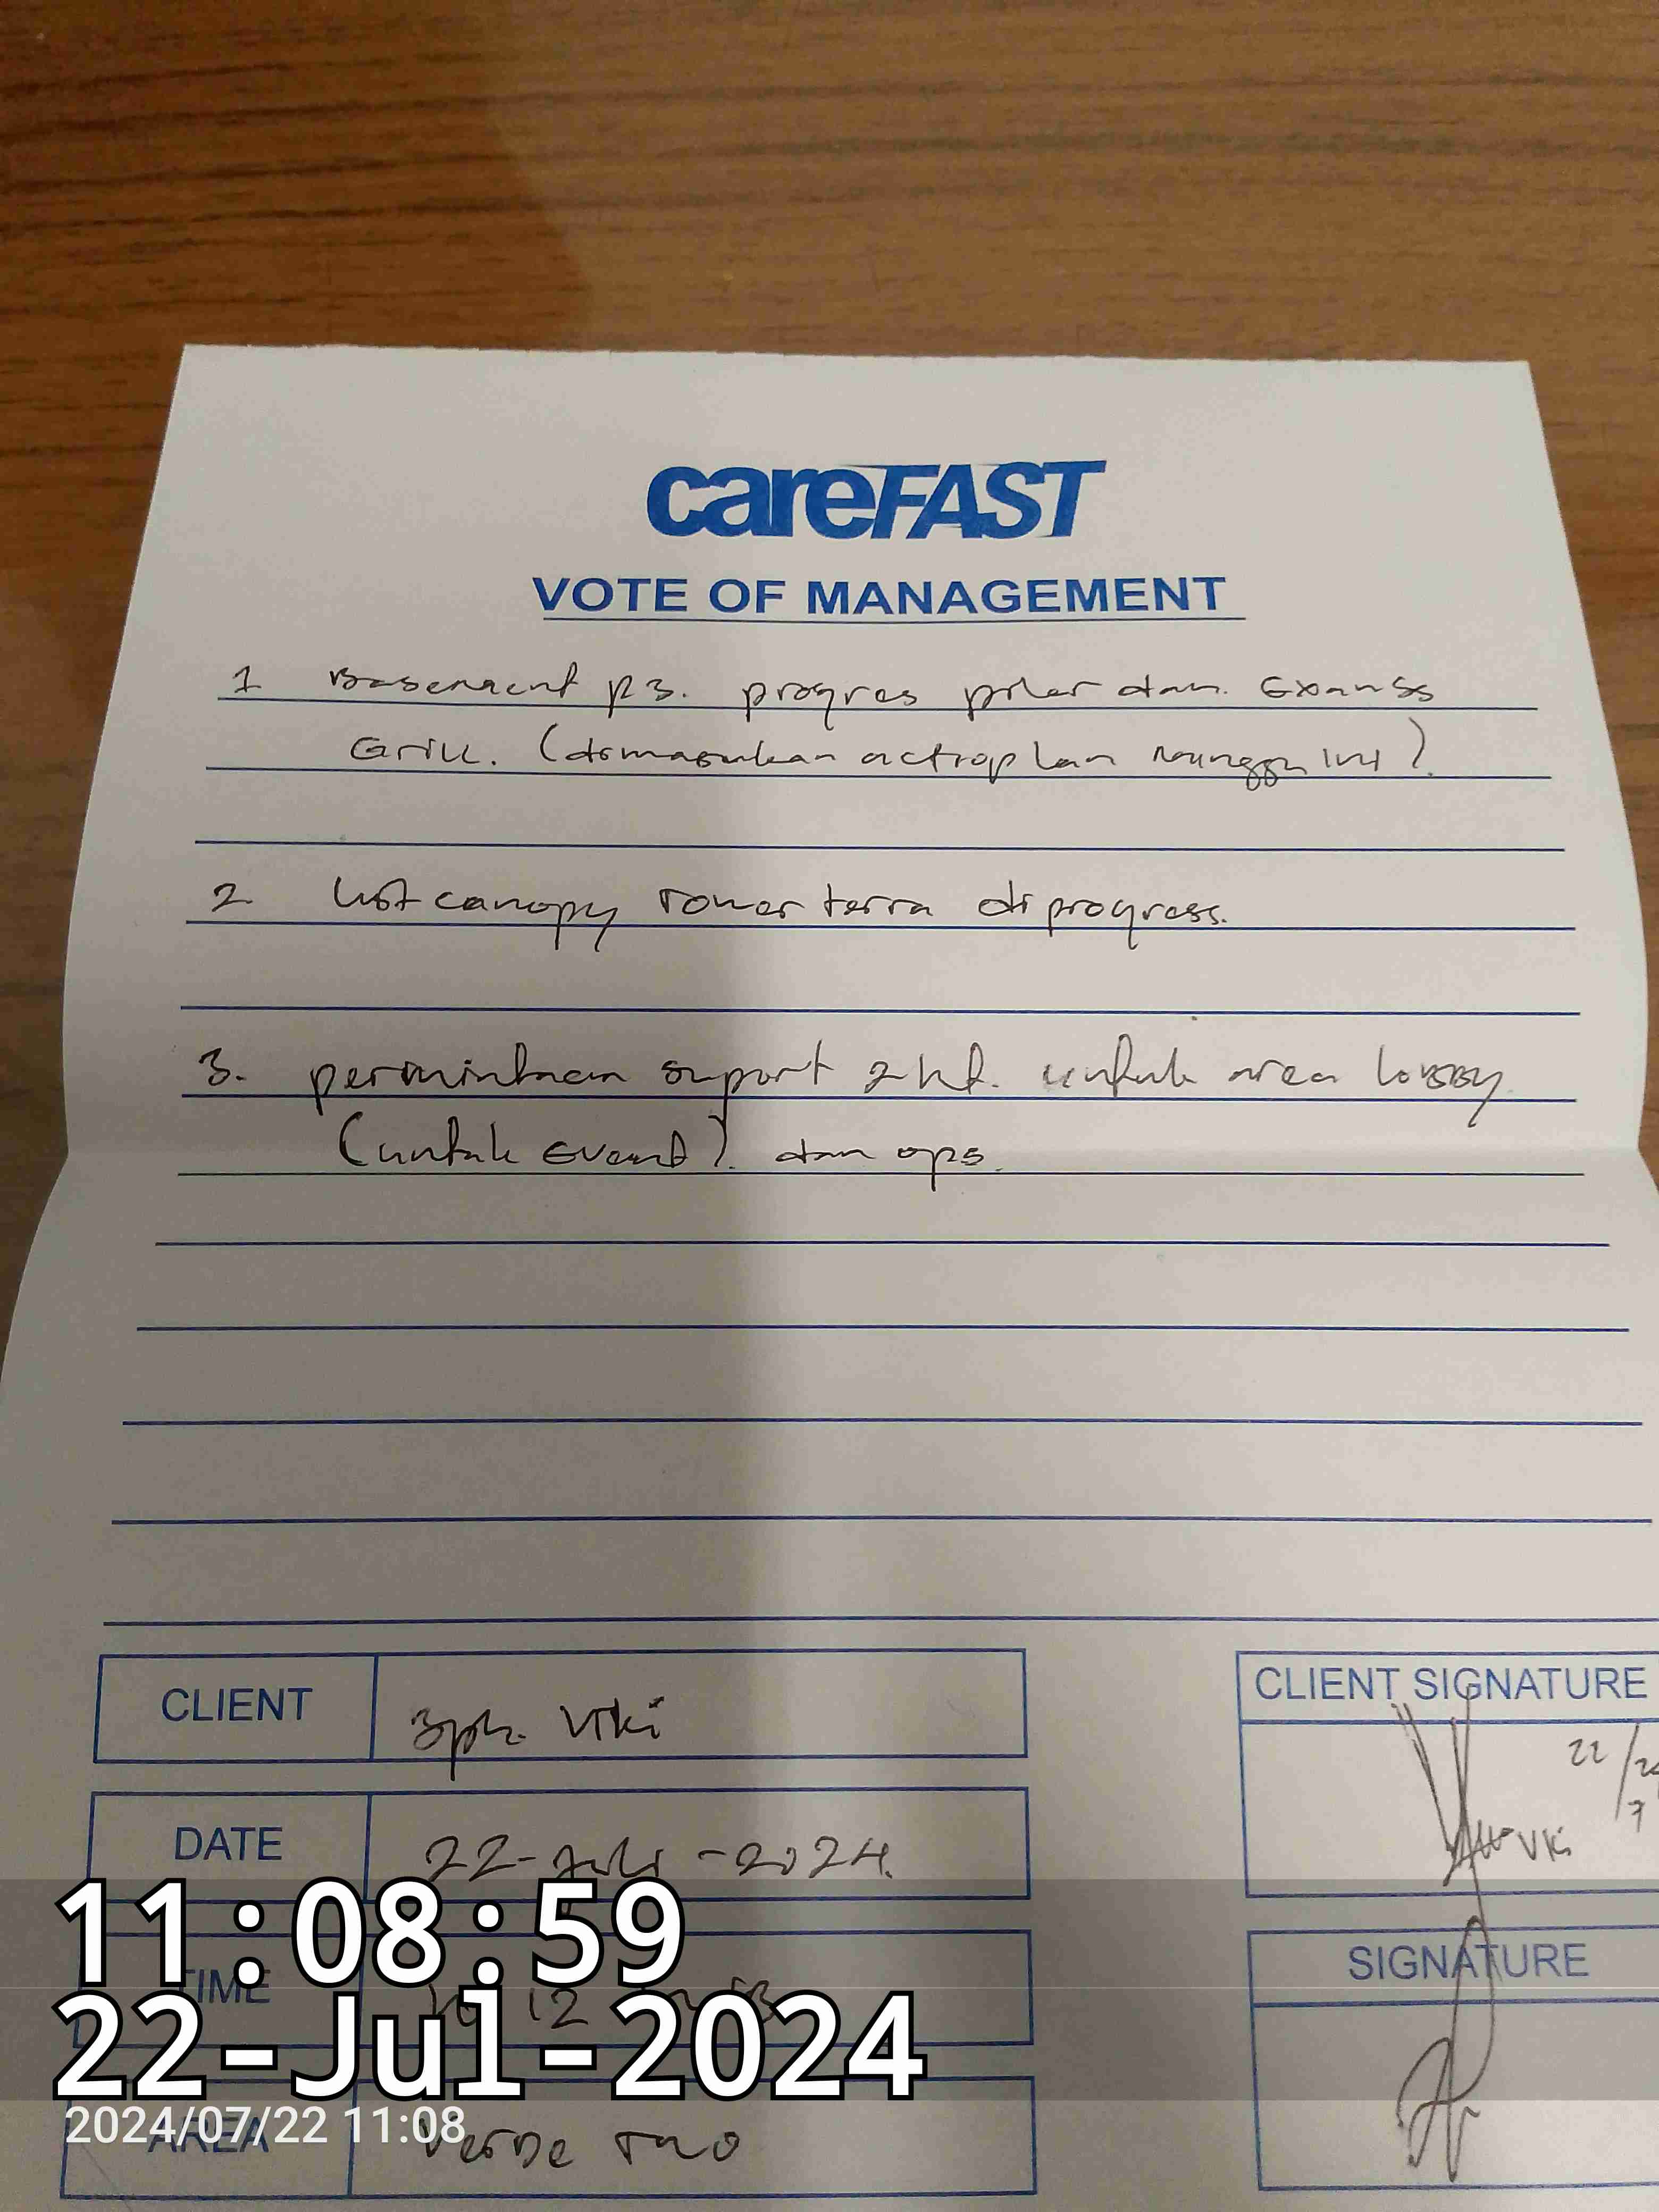 careFAST
VOTE OF MANAGEMENT
1 Basement P3. progres pilar dan Exauss
Grill. (dimasukan actionplan minggu ini).
2 List canopy Tower terra di progress.
3. permintaan suport 2 untuk area lobby
(untuk Event). dan ops.
CLIENT
Bpk. Viki
CLIENT SIGNATURE
22/7
Viki
DATE
22-Juli-2024.
11:08:59
TIME
12
SIGNATURE
22-Jul-2024
2024/07/22 11:08
AREA
Verde Two